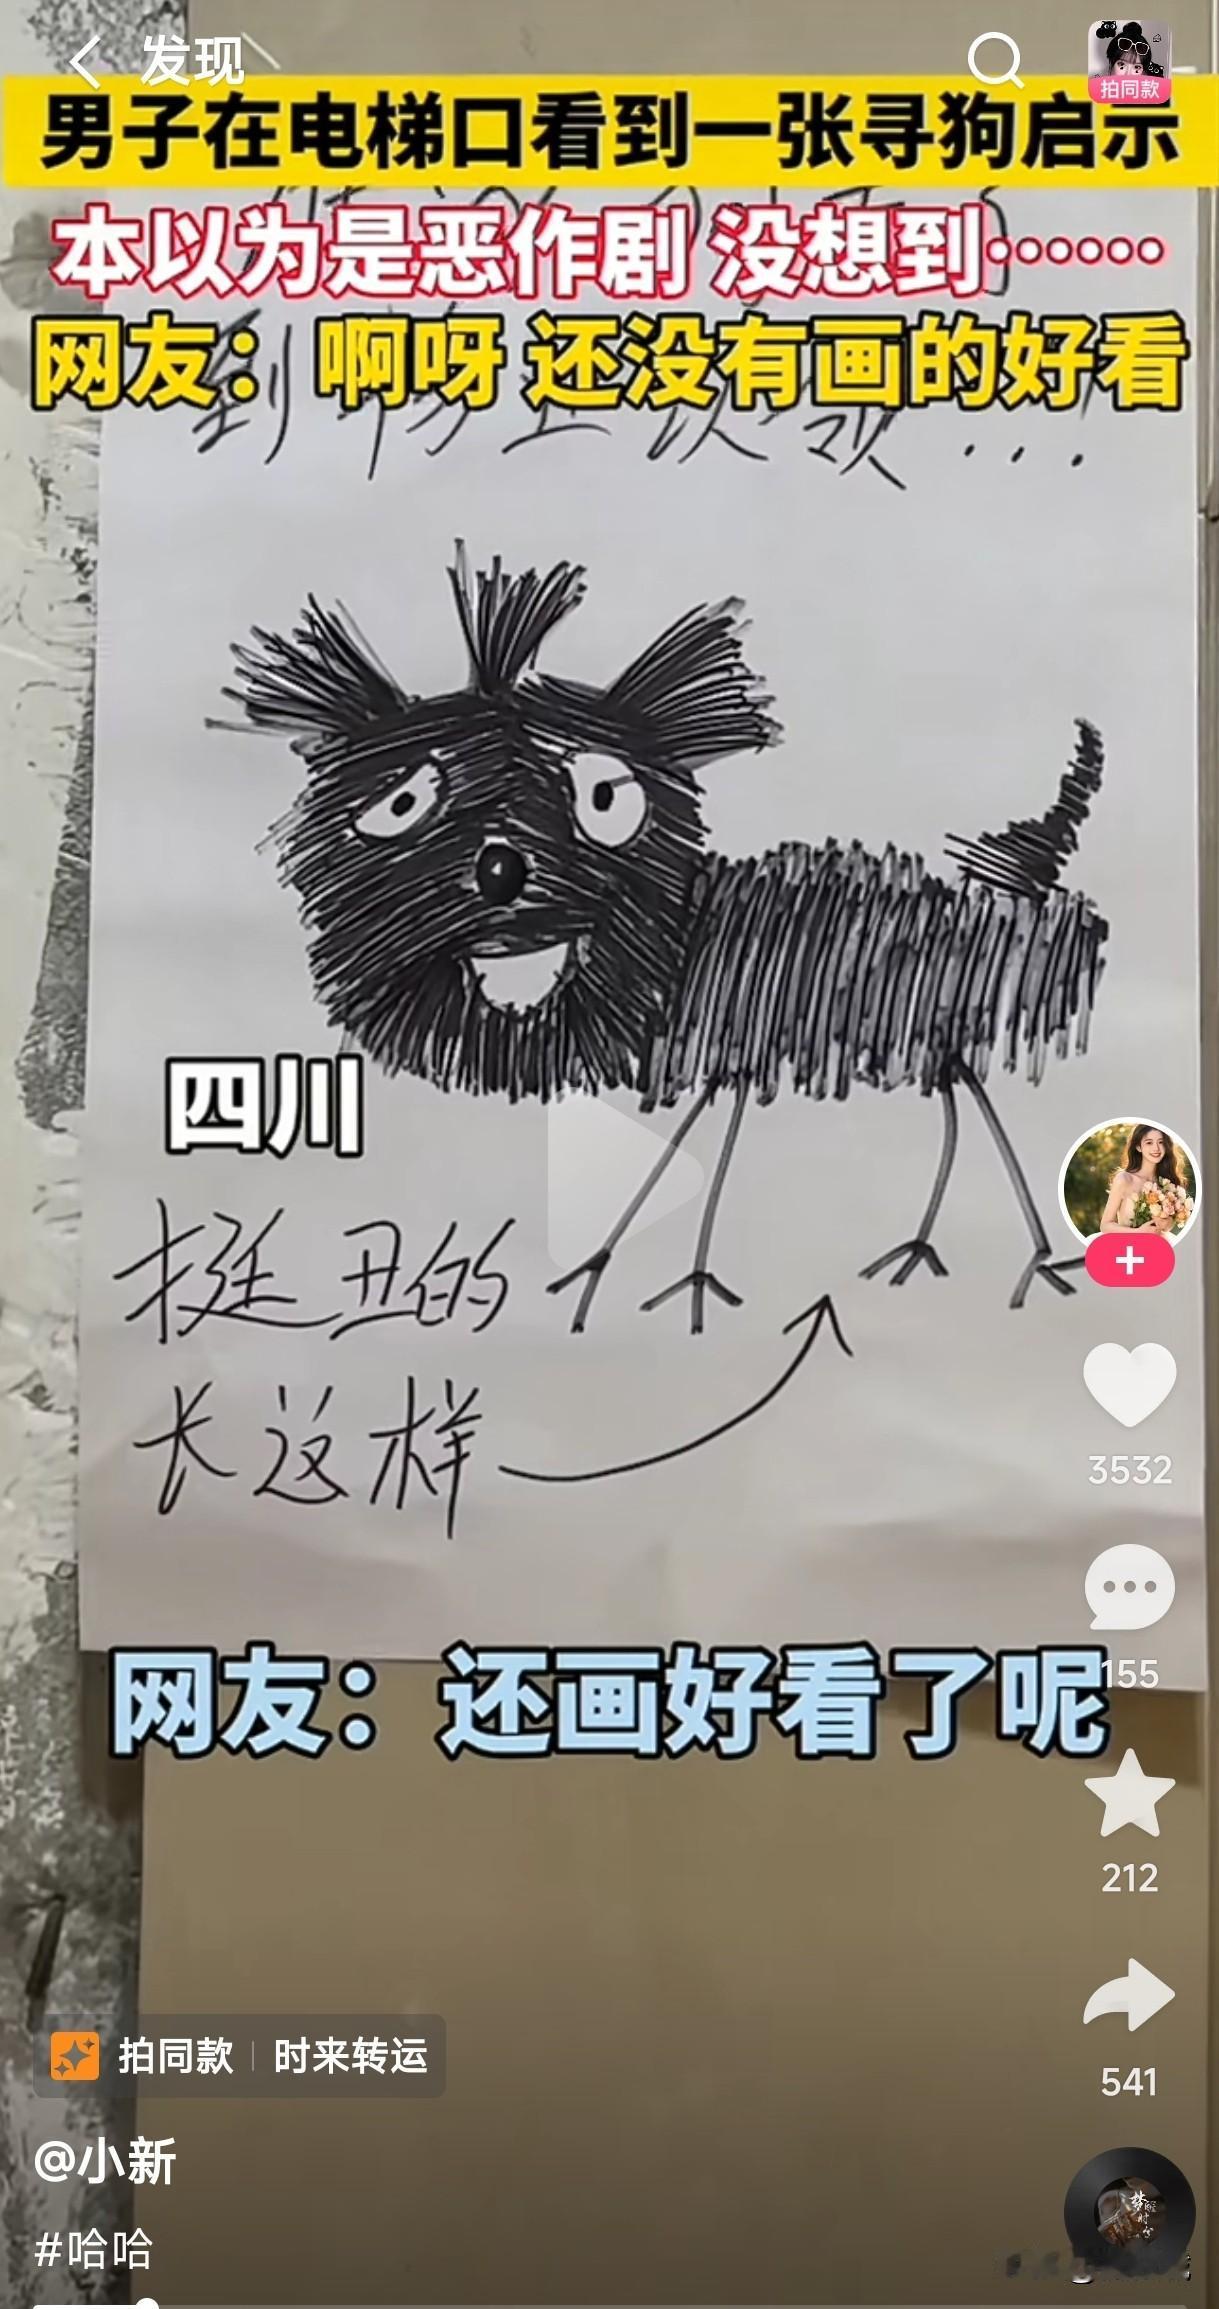 发现
拍同款
男子在电梯口看到一张寻狗启示
本以为是恶作剧 没想到……
网友：啊呀 还没有画的好看
四川
挺丑的
长这样
3532
155
网友：还画好看了呢
212
541
拍同款 | 时来转运
@小新
#哈哈